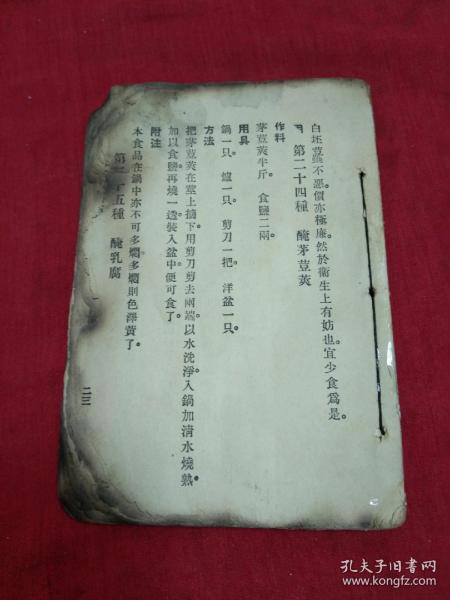 白坯荳雖不惡。價亦極廉。然於衞生上有妨也。宜少食爲是。
第二十四種　醃茅荳莢
作料
茅荳莢半斤。食鹽二兩。
用具
鍋一只。爐一只。剪刀一把。洋盆一只。
方法
把茅荳莢在莖上摘下。用剪刀剪去兩端。以水洗淨。入鍋加清水燒熟。
加以食鹽。再燒一透。裝入盆中。便可食了。
附注
本食品在鍋中。亦不可多燜。多燜則色澤黃了。
第二十五種　醃乳腐
二三
孔夫子旧书网
www.kongfz.com